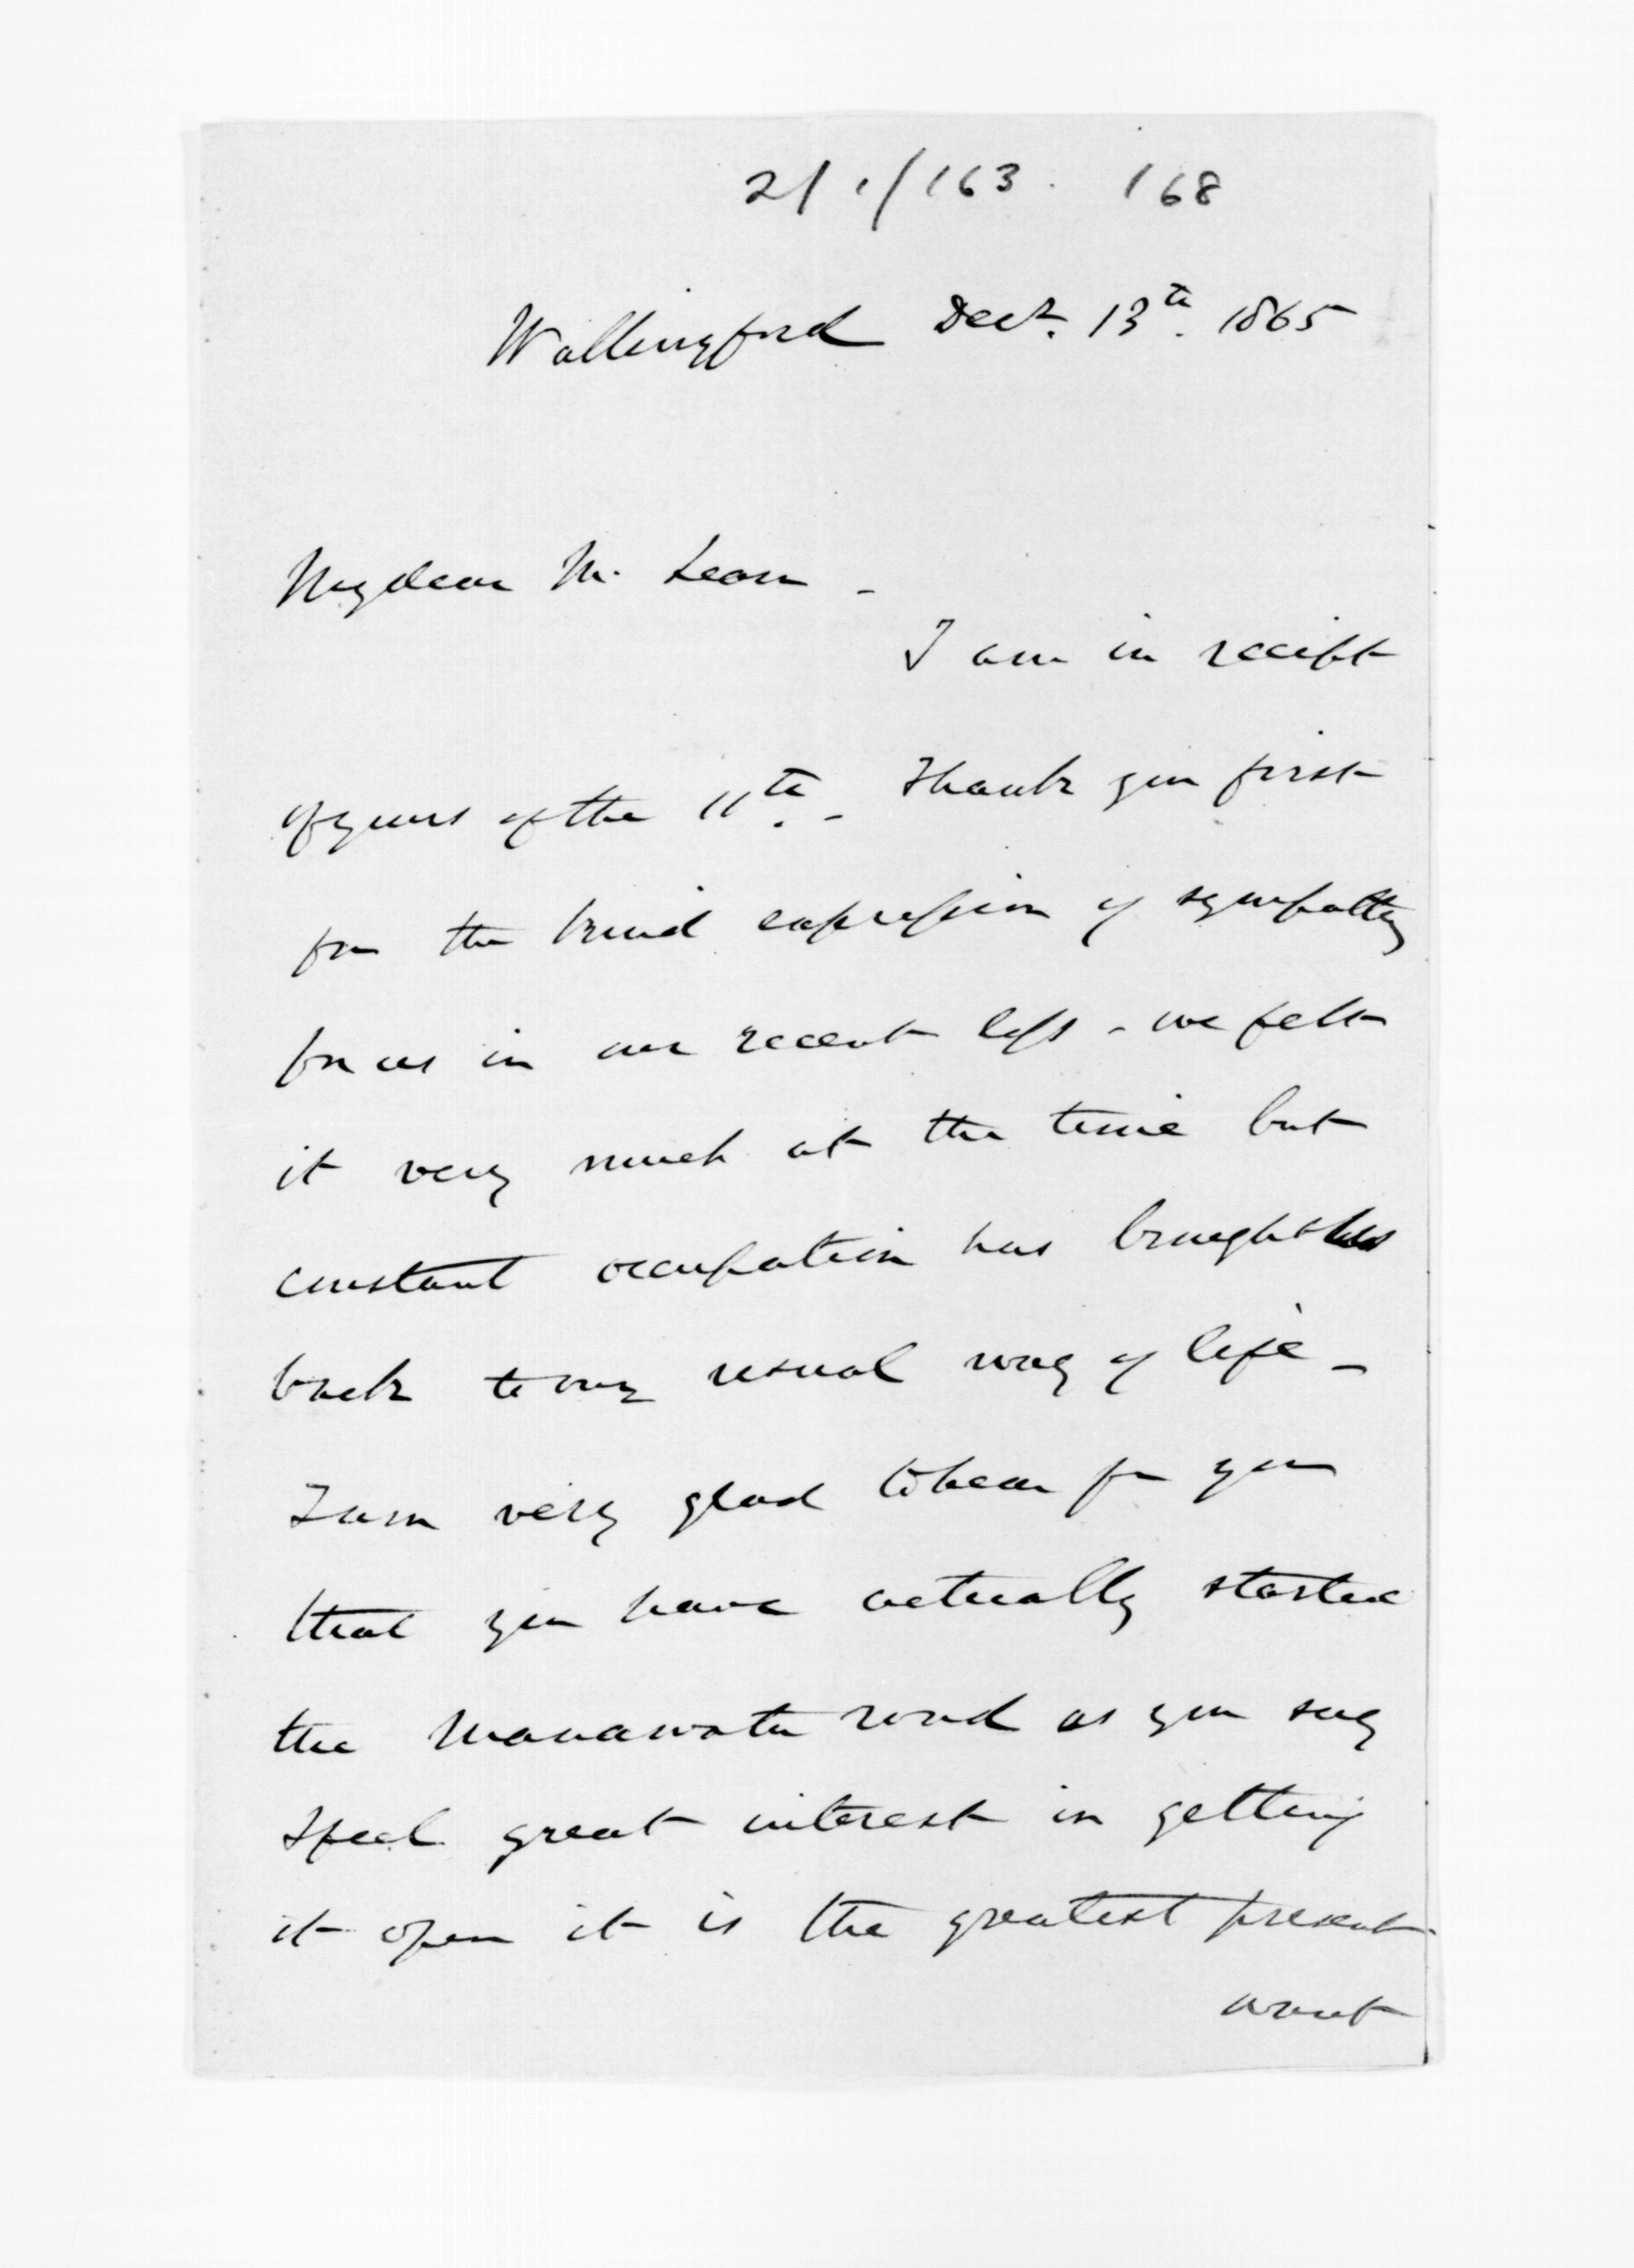 2/1/163. 168
Wallingford Decr. 13th. 1865
My dear Mc Lean -
I am in receipt
of yours of the 11th. - Thank you first
for the kind expression of sympathy
for us in our recent loss - we felt
it very much at the time but
constant occupation has brought
back to my usual way of life -
I am very glad to hear fm you
that you have actually started
the Manawatu road as you say
I feel great interest in getting
it open it is the greatest present
want